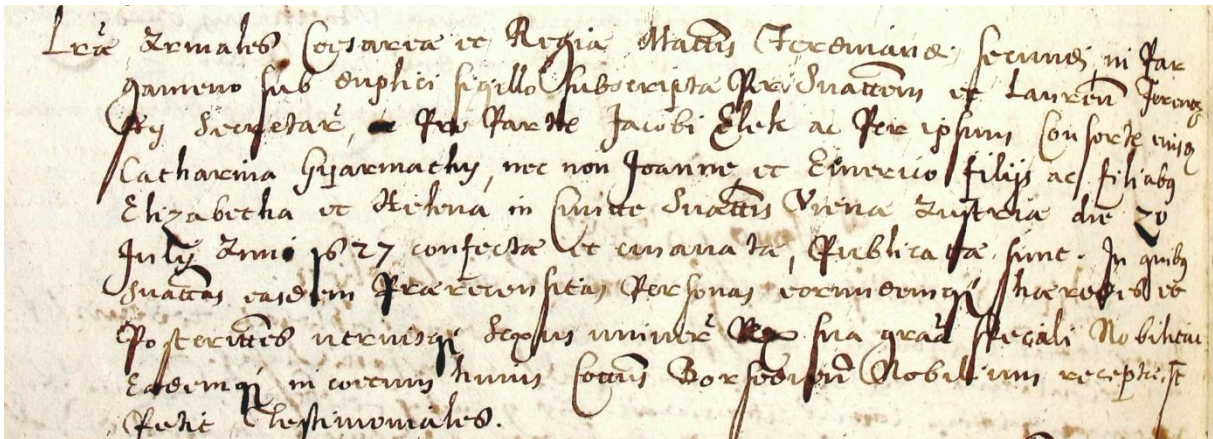 Lræ Armales Cæsareæ et Regiæ Mattis Ferdinandi secundi, in Par
gameno sub duplici sigillo Subscriptæ Per Suattem et Lauren Ferencz
ffy Secretar, Pro Parte Jacobi Elek ac Per ipsum Consorte eiusq
Catharina Gyarmathy, nec non Joanne et Emerico filijs ac filiabq
Elizabetha et Helena in Civitte Suattis Viena Austriæ die 20
July Anni 1627 confectæ et emanatæ, Publicatæ sunt. In quibq
Suattas easdem Prærecensitas Personas eorundemq hæredes et
Posterittes utriusq Sexus univer Ex sua gra Speciali Nobilitavit
Eademq in coetum huius Cottus Borsodien Nobilium receptæ st
Petit Testimoniales.